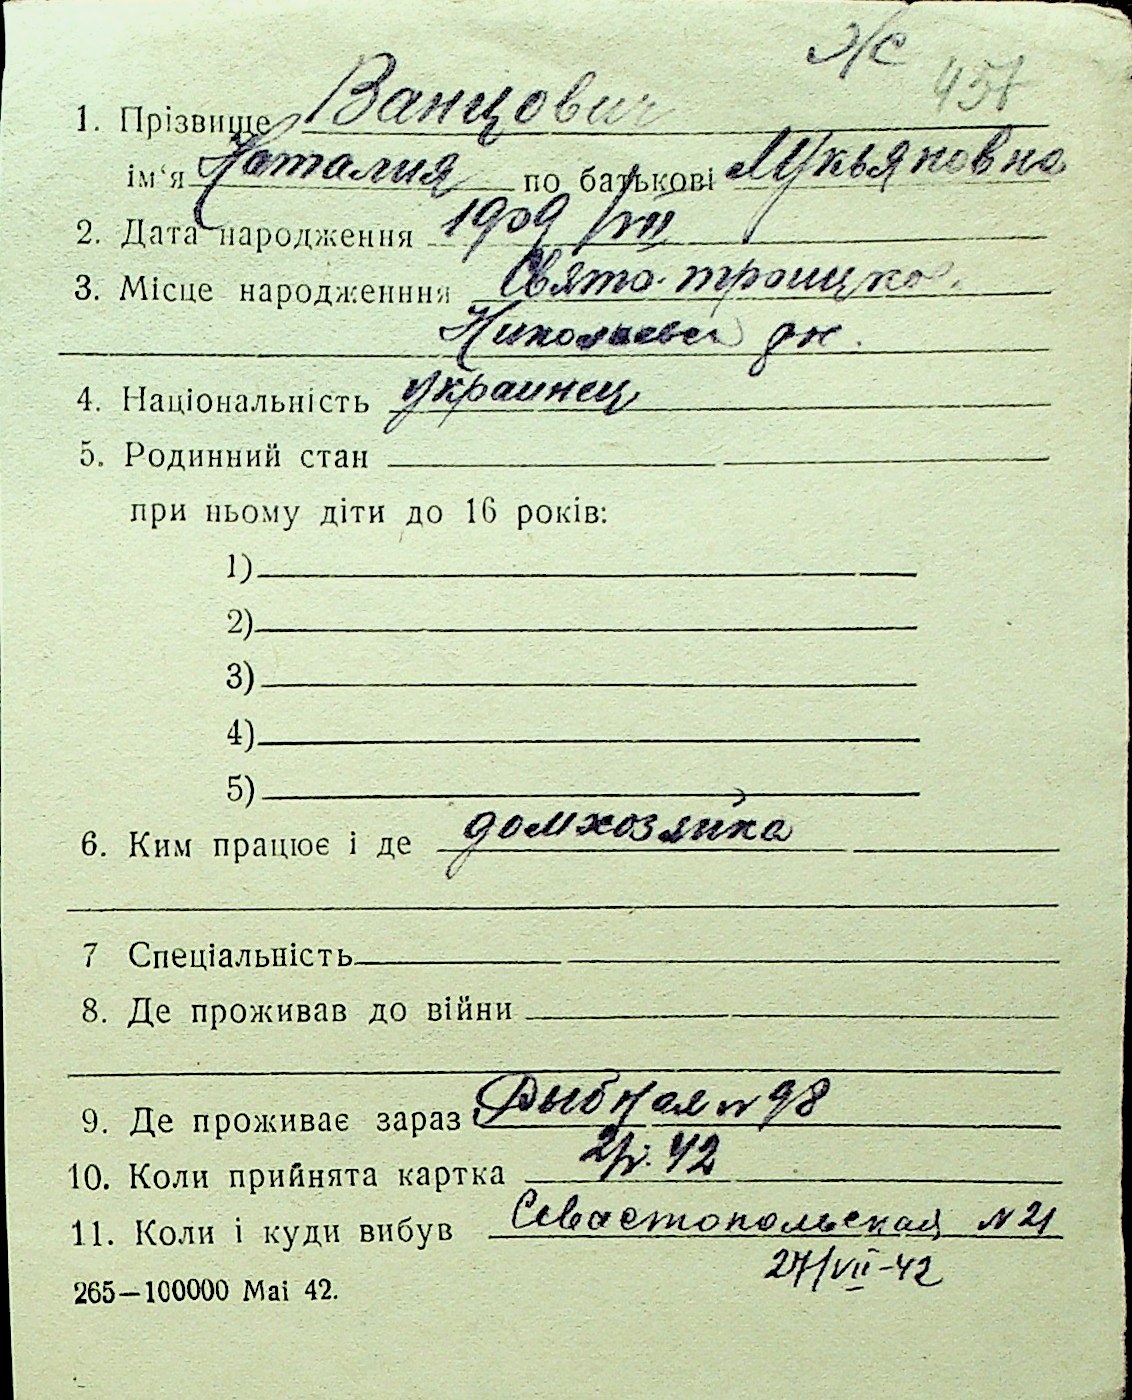 Ж 457
1. Прізвище Ванцович
ім‘я Наталия по батькові Лукьяновна
2. Дата народження 1909 /VII
3. Місце народженння Свято-троицкое.
Николаевск
4. Національність украинец
5. Родинний стан
при ньому діти до 16 років:
1)
2)
3)
4)
5)
6. Ким працює і де домхозяйка
7 Спеціальність
8. Де проживав до війни
9. Де проживає зараз Рыбная № 98
10. Коли прийнята картка 42
11. Коли і куди вибув Севастопольская № 21
27/VII-42
265—100000 Mai 42.